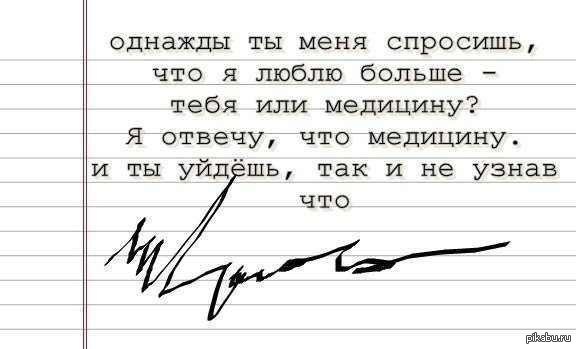 однажды ты меня спросишь,
что я люблю больше -
тебя или медицину?
Я отвечу, что медицину.
и ты уйдёшь, так и не узнав
что
pikabu.ru